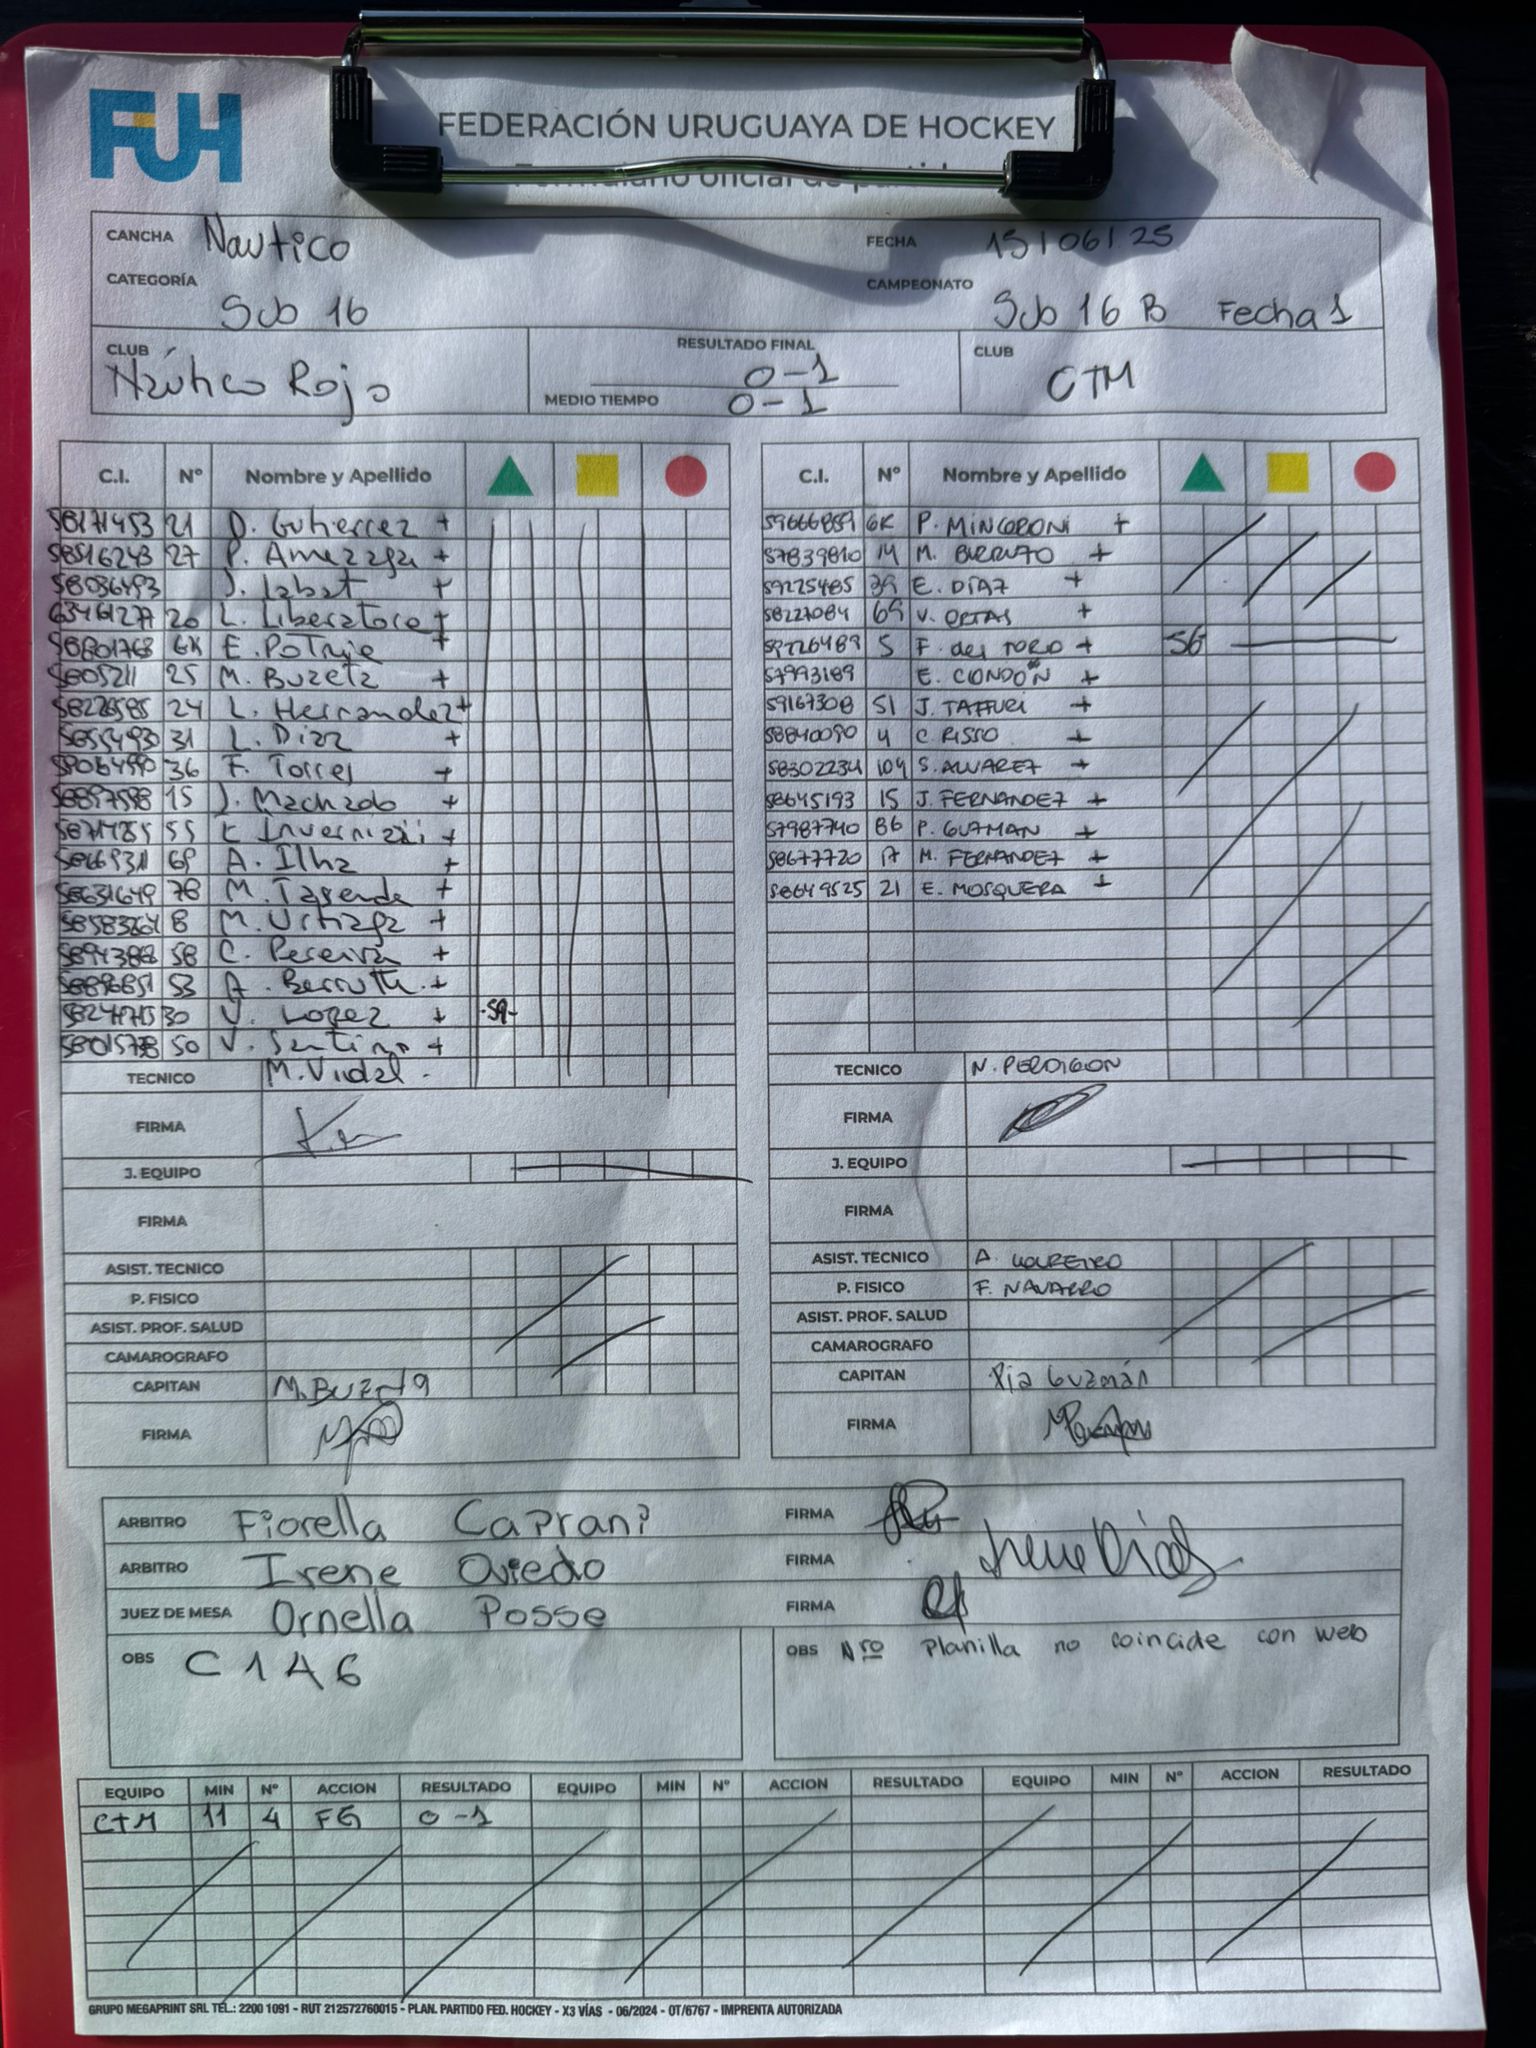 FUH
FEDERACIÓN URUGUAYA DE HOCKEY
CANCHA Nautico FECHA 15/06/25
CATEGORÍA Sub 16 CAMPEONATO Sub 16 B Fecha 1
CLUB Náutico Rojo
RESULTADO FINAL 0-1
MEDIO TIEMPO 0-1
CLUB CTM
C.I. Nº Nombre y Apellido
58171453 21 D. Gutierrez +
58516243 27 P. Amezaga +
J. Labat +
63461277 20 L. Liberatore +
GK E. Potrie +
5805211 25 M. Buzeta +
24 L. Hernandez +
31 L. Diaz +
36 F. Torres +
15 J. Machado +
55 Invernizzi +
69 A. Ilha +
78 M. Taserde +
8 M. Urtiaga +
58 C. Pereira +
53 A. Berrutti +
30 V. Lopez +
50 V. Santino +
TECNICO M. Vidal.
FIRMA
J. EQUIPO
FIRMA
ASIST. TECNICO
P. FISICO
ASIST. PROF. SALUD
CAMAROGRAFO
CAPITAN M. Buzeta
FIRMA
C.I. Nº Nombre y Apellido
59666859 GK P. MINGRONI +
57839810 14 M. BERRUTO +
59225485 39 E. DÍAZ +
58227084 69 V. +
59726489 5 F. del TORO + 56
57993189 E. CONDÓN +
59167308 51 J. TAFFURI +
58840090 4 C. RISSO +
58302234 104 S. ALVAREZ +
58645193 15 J. FERNANDEZ +
57987740 86 P. GUZMAN +
58677720 17 M. FERNANDEZ +
58649525 21 E. MOSQUERA +
TECNICO N. PERDIGON
FIRMA
J. EQUIPO
FIRMA
ASIST. TECNICO A. LOUREIRO
P. FISICO F. NAVARRO
ASIST. PROF. SALUD
CAMAROGRAFO
CAPITAN Pia Guzmán
FIRMA
ARBITRO Fiorella Caprani FIRMA
ARBITRO Irene Oviedo FIRMA
JUEZ DE MESA Ornella Posse FIRMA
OBS C1A6
OBS Nro Planilla no coincide con web
EQUIPO MIN Nº ACCION RESULTADO EQUIPO MIN Nº ACCION RESULTADO EQUIPO MIN Nº ACCION RESULTADO
CTM 11 4 FG 0-1
GRUPO MEGAPRINT SRL TEL.: 2200 1091 - RUT 212572760015 - PLAN. PARTIDO FED. HOCKEY - X3 VÍAS - 06/2024 - OT/6767 - IMPRENTA AUTORIZADA